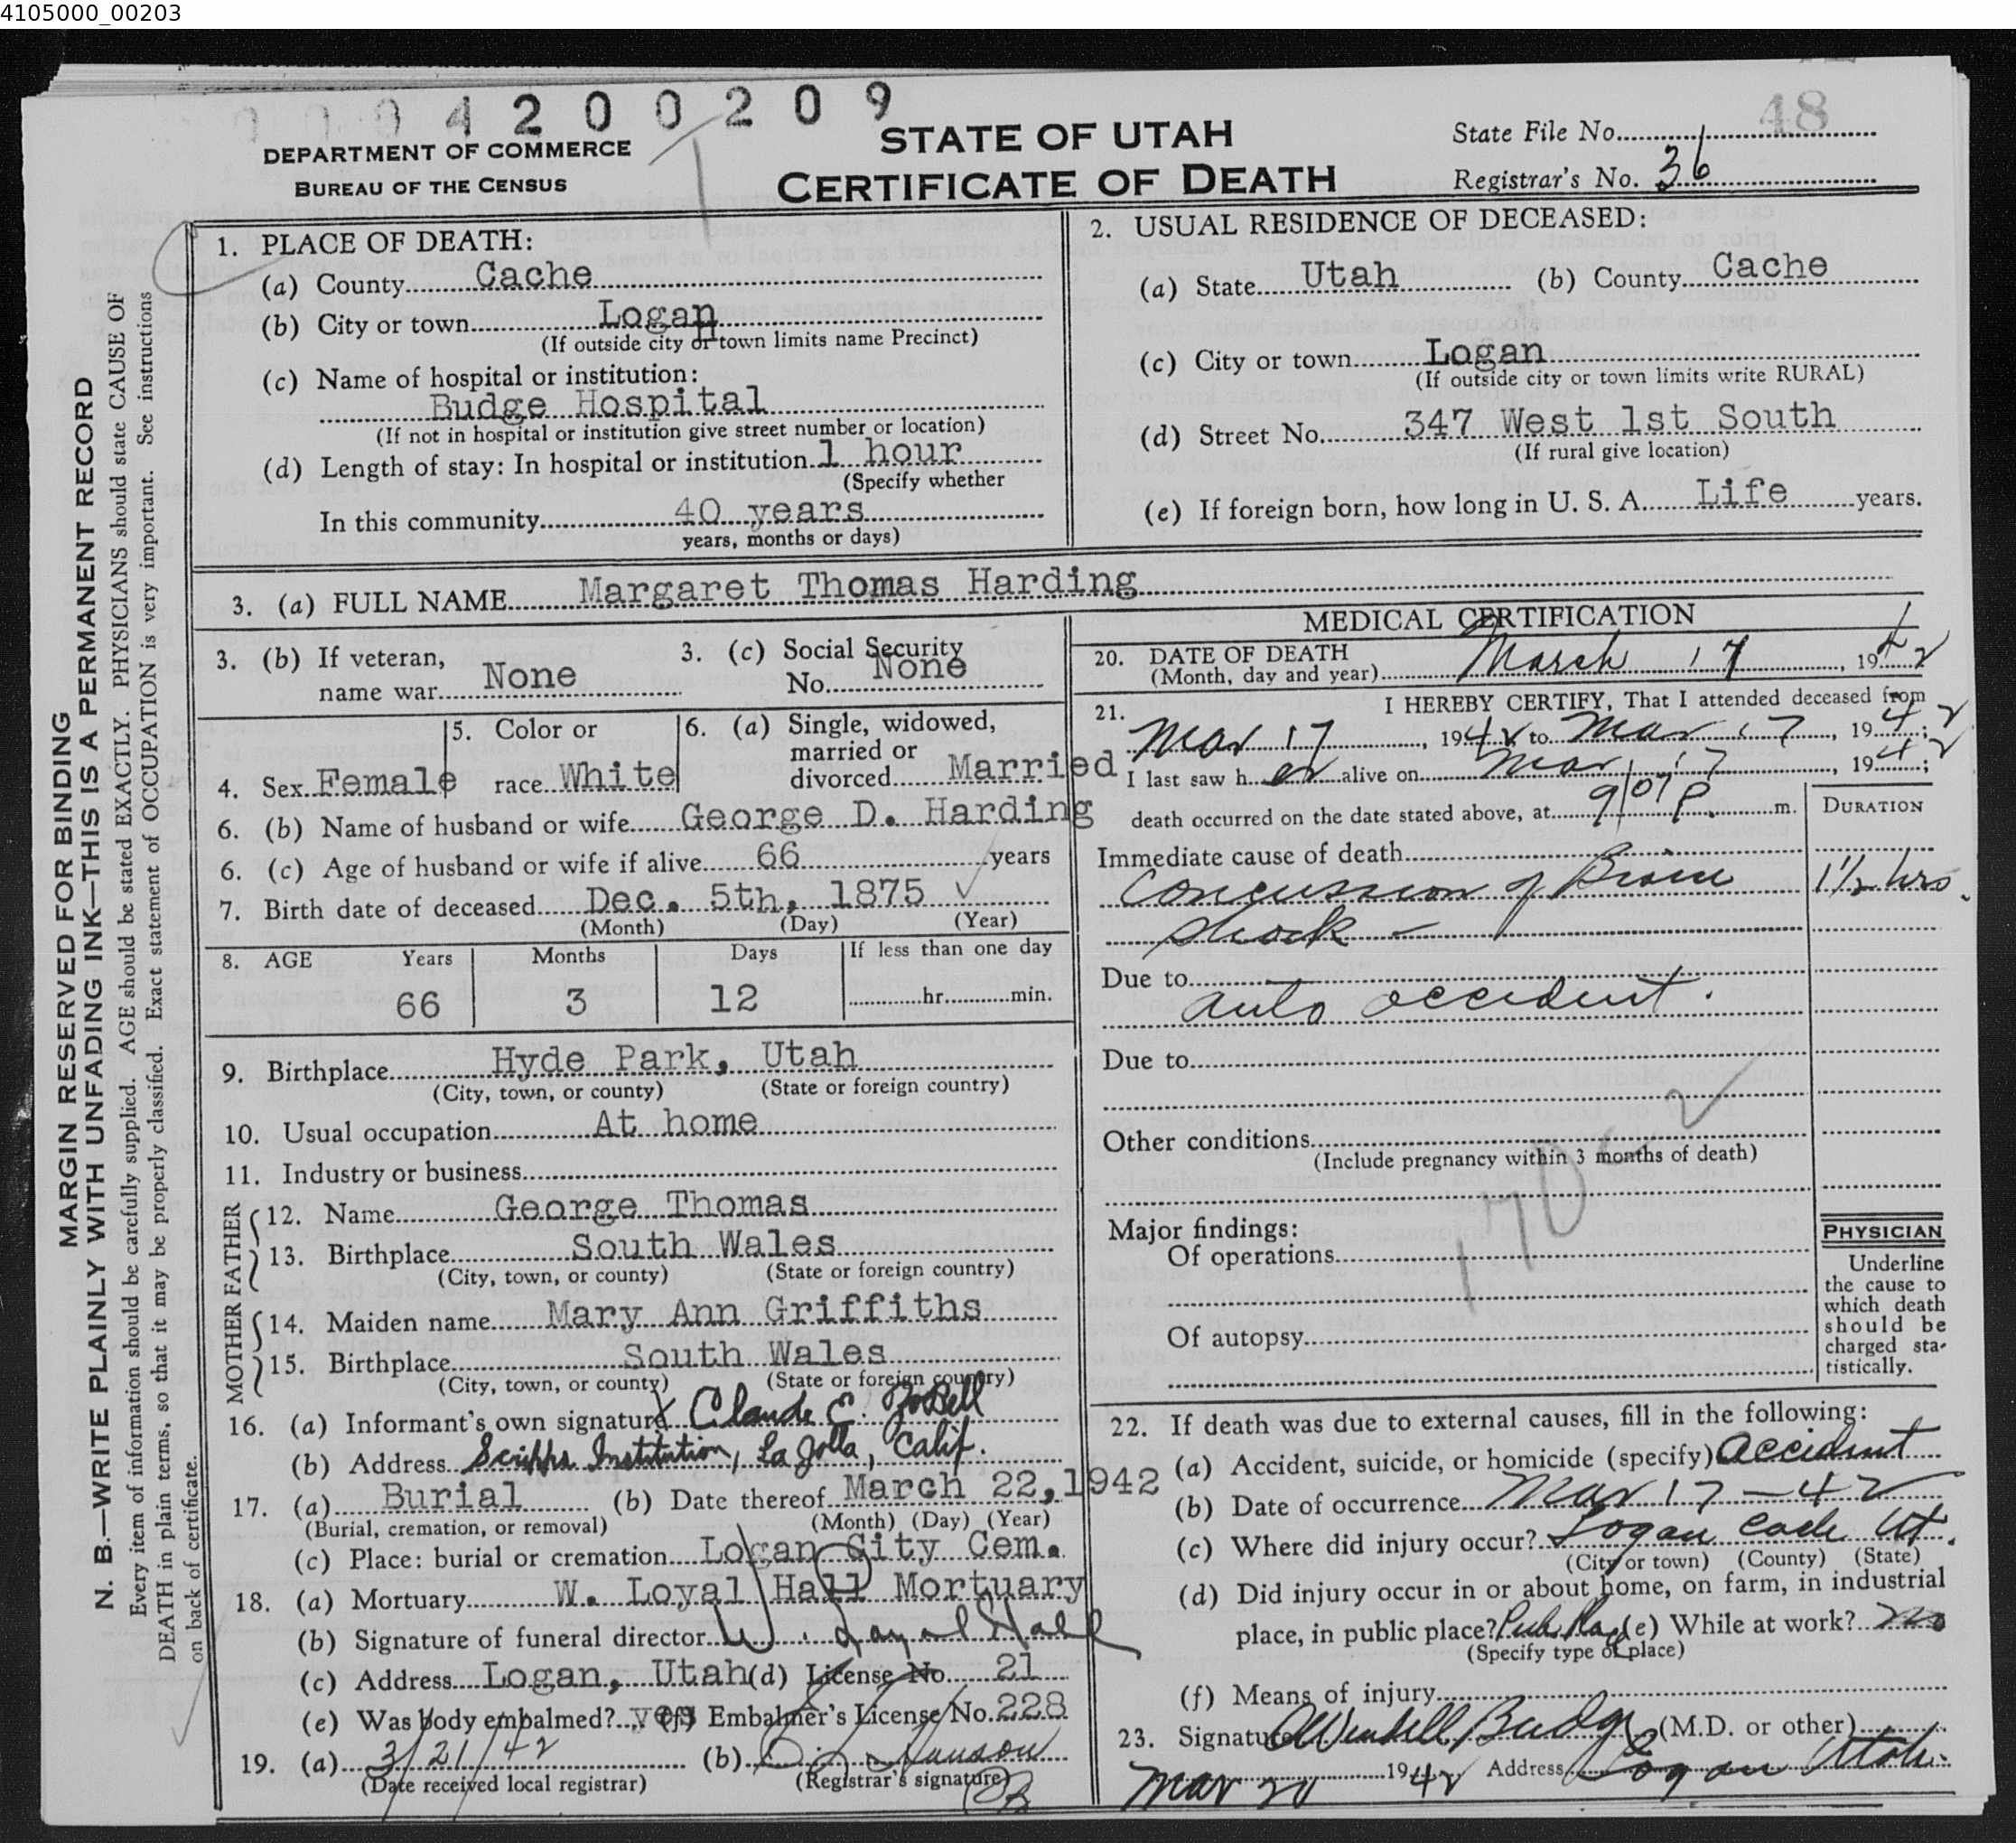 4105000_00203
4 2 0 0 2 0 9
48
DEPARTMENT OF COMMERCE
BUREAU OF THE CENSUS
STATE OF UTAH
CERTIFICATE OF DEATH
State File No.
Registrar's No. 36
MARGIN RESERVED FOR BINDING
N. B.—WRITE PLAINLY WITH UNFADING INK—THIS IS A PERMANENT RECORD
Every item of information should be carefully supplied. AGE should be stated EXACTLY. PHYSICIANS should state CAUSE OF
DEATH in plain terms, so that it may be properly classified. Exact statement of OCCUPATION is very important. See instructions
on back of certificate.
1. PLACE OF DEATH:
(a) County Cache
(b) City or town Logan
(If outside city or town limits name Precinct)
(c) Name of hospital or institution:
Budge Hospital
(If not in hospital or institution give street number or location)
(d) Length of stay: In hospital or institution 1 hour
(Specify whether
In this community 40 years
years, months or days)
2. USUAL RESIDENCE OF DECEASED:
(a) State Utah (b) County Cache
(c) City or town Logan
(If outside city or town limits write RURAL)
(d) Street No. 347 West 1st South
(If rural give location)
(e) If foreign born, how long in U. S. A. Life years.
3. (a) FULL NAME Margaret Thomas Harding
3. (b) If veteran,
name war None
3. (c) Social Security
No. None
4. Sex Female
5. Color or
race White
6. (a) Single, widowed,
married or
divorced Married
6. (b) Name of husband or wife George D. Harding
6. (c) Age of husband or wife if alive 66 years
7. Birth date of deceased Dec. 5th, 1875
(Month) (Day) (Year)
8. AGE Years Months Days If less than one day
66 3 12 hr. min.
9. Birthplace Hyde Park, Utah
(City, town, or county) (State or foreign country)
10. Usual occupation At home
11. Industry or business
FATHER
12. Name George Thomas
13. Birthplace South Wales
(City, town, or county) (State or foreign country)
MOTHER
14. Maiden name Mary Ann Griffiths
15. Birthplace South Wales
(City, town, or county) (State or foreign country)
16. (a) Informant's own signature Claude E. ZoBell
(b) Address Scripps Institution, La Jolla, Calif.
17. (a) Burial (b) Date thereof March 22, 1942
(Burial, cremation, or removal) (Month) (Day) (Year)
(c) Place: burial or cremation Logan City Cem.
18. (a) Mortuary W. Loyal Hall Mortuary
(b) Signature of funeral director W. Loyal Hall
(c) Address Logan, Utah (d) License No. 21
(e) Was body embalmed? yes (f) Embalmer's License No. 228
19. (a) 3/21/42 (b) Hanson
(Date received local registrar) (Registrar's signature)
MEDICAL CERTIFICATION
20. DATE OF DEATH
(Month, day and year) March 17, 1942
21. I HEREBY CERTIFY, That I attended deceased from
Mar 17, 1942 to Mar 17, 1942;
I last saw her alive on Mar 17, 1942;
death occurred on the date stated above, at 9:07 P. m.
DURATION
Immediate cause of death
Concussion of Brain 1½ hrs.
Shock -
Due to
auto accident.
Due to
Other conditions
(Include pregnancy within 3 months of death)
170c-2
Major findings:
Of operations
Of autopsy
PHYSICIAN
Underline
the cause to
which death
should be
charged sta-
tistically.
22. If death was due to external causes, fill in the following:
(a) Accident, suicide, or homicide (specify) Accident
(b) Date of occurrence Mar 17-42
(c) Where did injury occur? Logan Cache Ut.
(City or town) (County) (State)
(d) Did injury occur in or about home, on farm, in industrial
place, in public place? Pub. Place (e) While at work? No
(Specify type of place)
(f) Means of injury
23. Signature Wendell Budge (M.D. or other)
Mar 20 1942 Address Logan Utah.